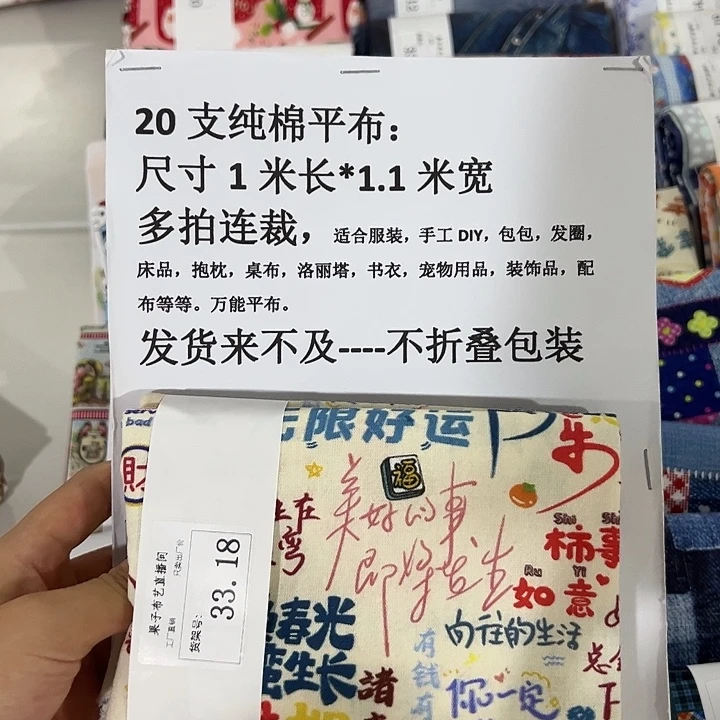 20 支纯棉平布：
尺寸 1 米长*1.1 米宽
多拍连裁，适合服装，手工 DIY，包包，发圈，
床品，抱枕，桌布，洛丽塔，书衣，宠物用品，装饰品，配
布等等。万能平布。
发货来不及----不折叠包装
bad
无限好运
牛
财
福
美好的事
即将发生
在
弯
Shi
柿事
Ru Yi
如意
春光
生长
向往的生活
有钱有
你一定
诸
果子布艺直播间
工厂直销
只卖出厂价
货架号：
33.18